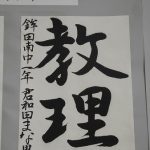 教理
鉾田南中一年 君和田まな